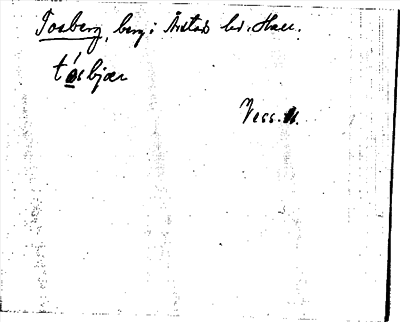 Tosberg, berg i Årstad hd. Hall.
tósbjær
Vess.